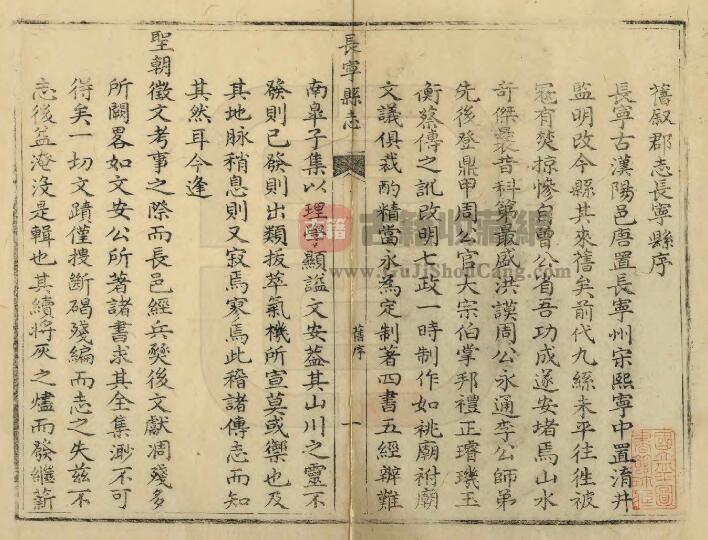 舊敘郡志長寧縣序
長寧古漢陽邑唐置長寧州宋熙寧中置淯井
監明改今縣其來舊矣前代九絲未平往徃被
寇有焚掠慘自曾公省吾功成遂安堵焉山水
竒傑曩昔科第最盛洪謨周公永通李公師弟
先後登鼎甲周公官大宗伯掌邦禮正璿璣玉
衡蔡傳之訛改明七政一時制作如祧廟祔廟
文議俱裁酌精當永為定制著四書五經辨難
長寧縣志
舊序
一
南臯子集以理學顯諡文安葢其山川之靈不
發則已發則出類拔萃氣機所宣莫或禦也及
其地脉稍息則又寂焉寥焉此稽諸傳志而知
其然耳今逢
聖朝徵文考事之際而長邑經兵燹後文獻凋殘多
所闕畧如文安公所著諸書求其全集渺不可
得矣一切文蹟僅搜斷碣殘編而志之失兹不
志後益淹没是輯也其續將灰之燼而發繼薪
古籍收藏網
www.GuJiShouCang.com